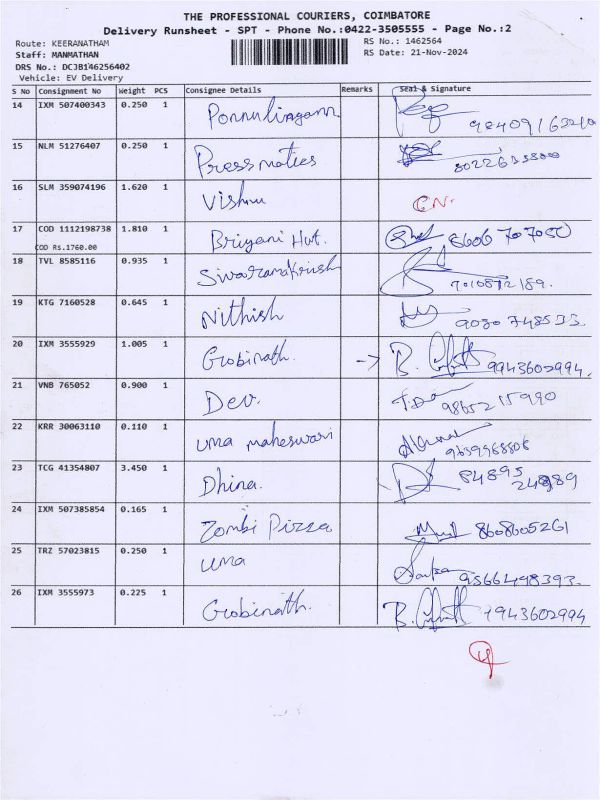 THE PROFESSIONAL COURIERS, COIMBATORE
Delivery Runsheet - SPT - Phone No.:0422-3505555 - Page No.:2
Route: KEERANATHAM RS No.: 1462564
Staff: MANMATHAN RS Date: 21-Nov-2024
DRS No.: DC3B146256402
Vehicle: EV Delivery
S No Consignment No Weight PCS Consignee Details Remarks Seal & Signature
14 IXM 507400343 0.250 1 Ponnulingam
15 NLM 51276407 0.250 1 Pressmatics
16 SLM 359074196 1.620 1 Vishnu C.N.
17 COD 1112198738 1.810 1 Briyani Hut. 8606 707050
COD Rs.1760.00
18 TVL 8585116 0.935 1 Sivaramakrish
19 KTG 7160528 0.645 1 Nithish 9080 748533
20 IXM 3555929 1.005 1 Gobinath. 9943602994.
21 VNB 765052 0.900 1 Dev. 9865215990
22 KRR 30063110 0.110 1 uma maheswari
23 TCG 41354807 3.450 1 Dhina. 84895
24 IXM 507385854 0.165 1 Zombi Pizza 8608605261
25 TRZ 57023815 0.250 1 uma 9566498393.
26 IXM 3555973 0.225 1 Gobinath. 9943602994